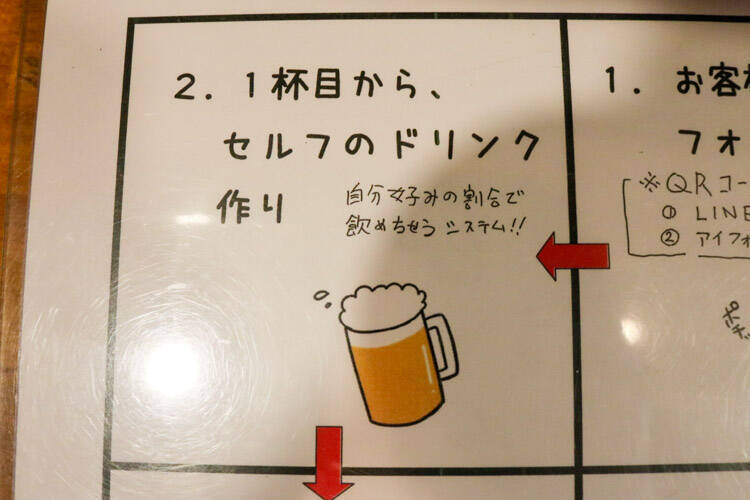 2. 1杯目から、
セルフのドリンク
作り
自分好みの割合で
飲めちゃう システム!!
1. お客
フォ
※QRコー
① LINE
② アイフォ